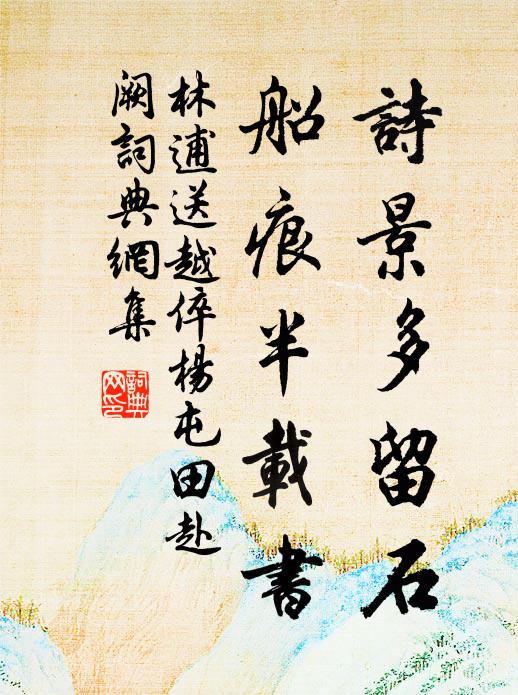 詩景多留石
船痕半載書
林逋送越倅楊屯田赴
闕詞典網集
詞典
网印